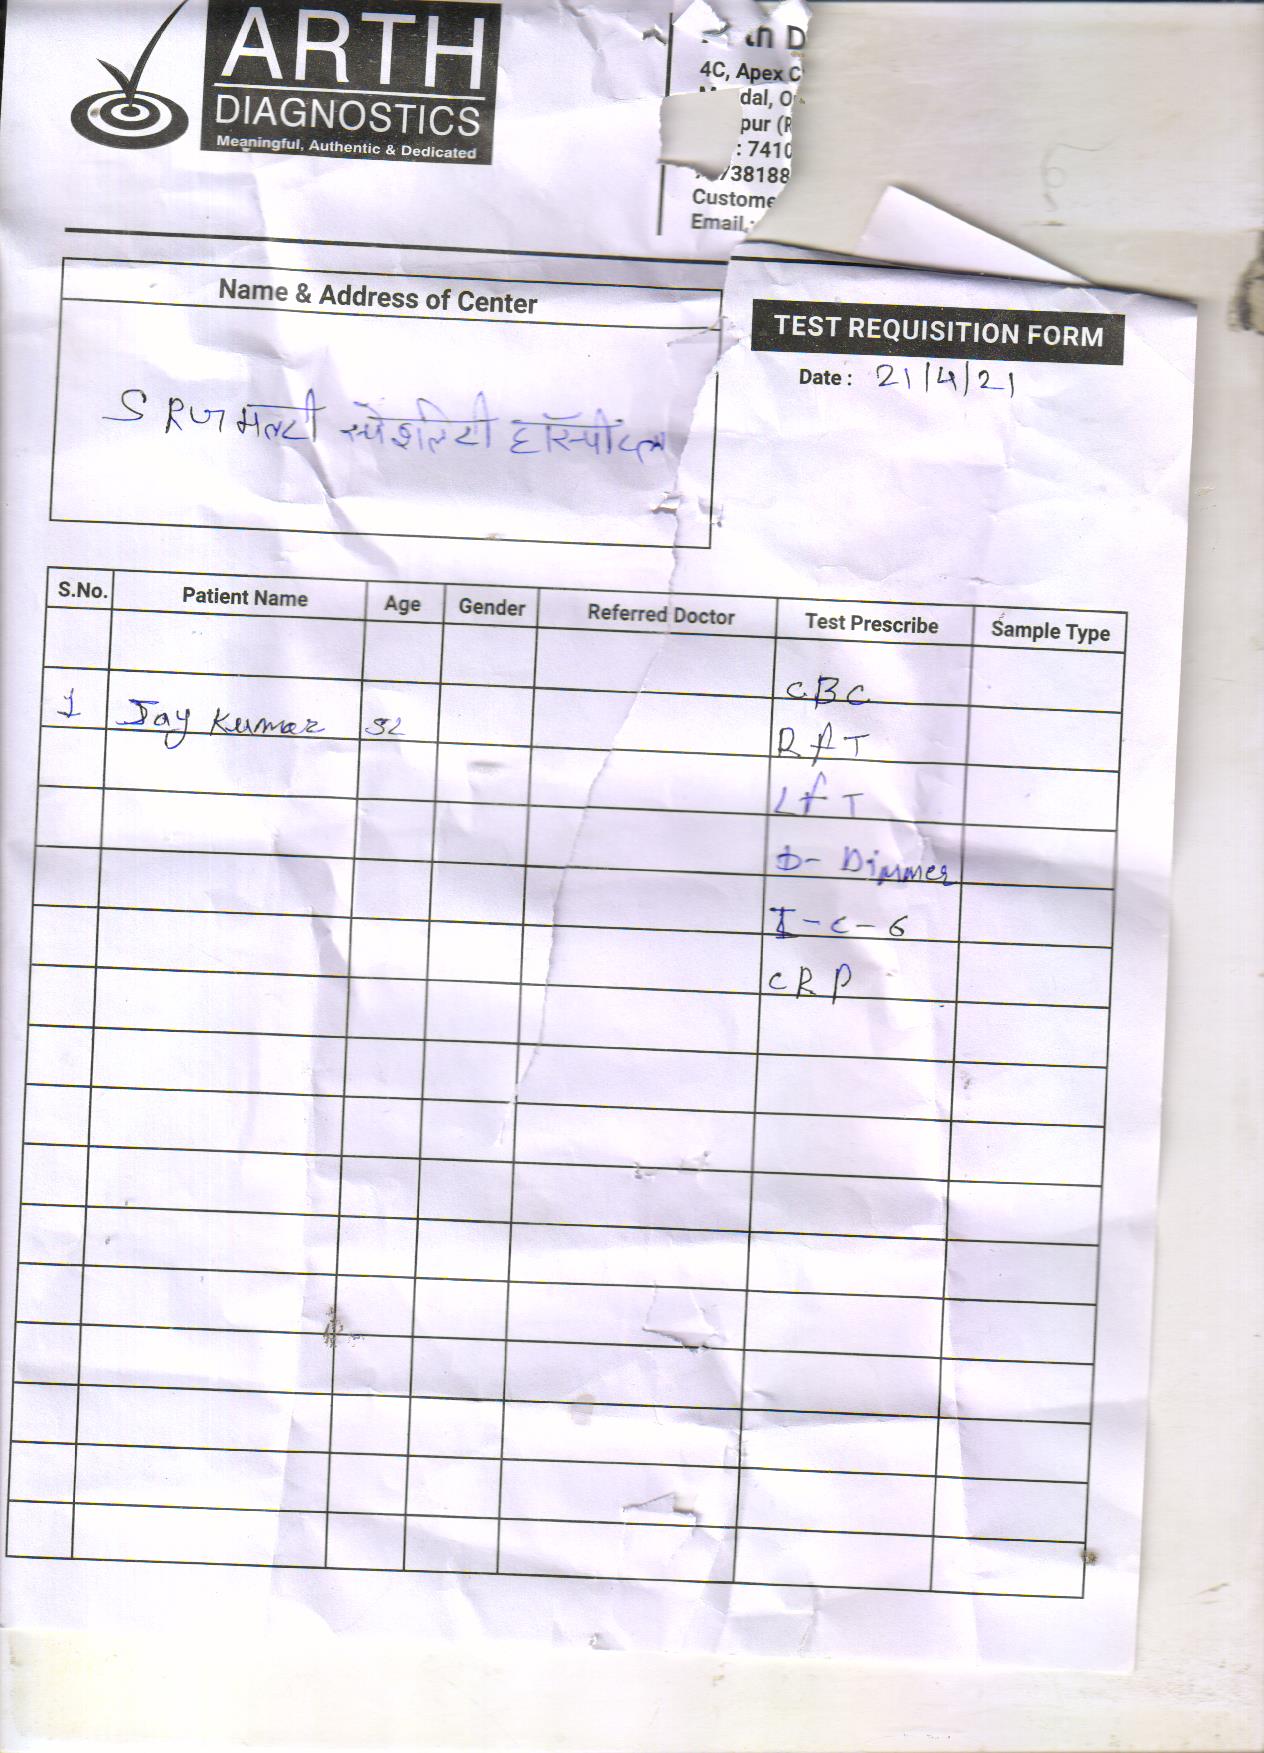 ARTH
DIAGNOSTICS
Meaningful, Authentic & Dedicated
4C, Apex
Custome
Email.:
Name & Address of Center
मल्टी स्पेशलिटी हॉस्पीटल
TEST REQUISITION FORM
Date : 21/4/21
S.No. Patient Name Age Gender Referred Doctor Test Prescribe Sample Type
CBC
1 Jay Kumar 52 RfT
LfT
D- Dimmer
I-C-6
CRP